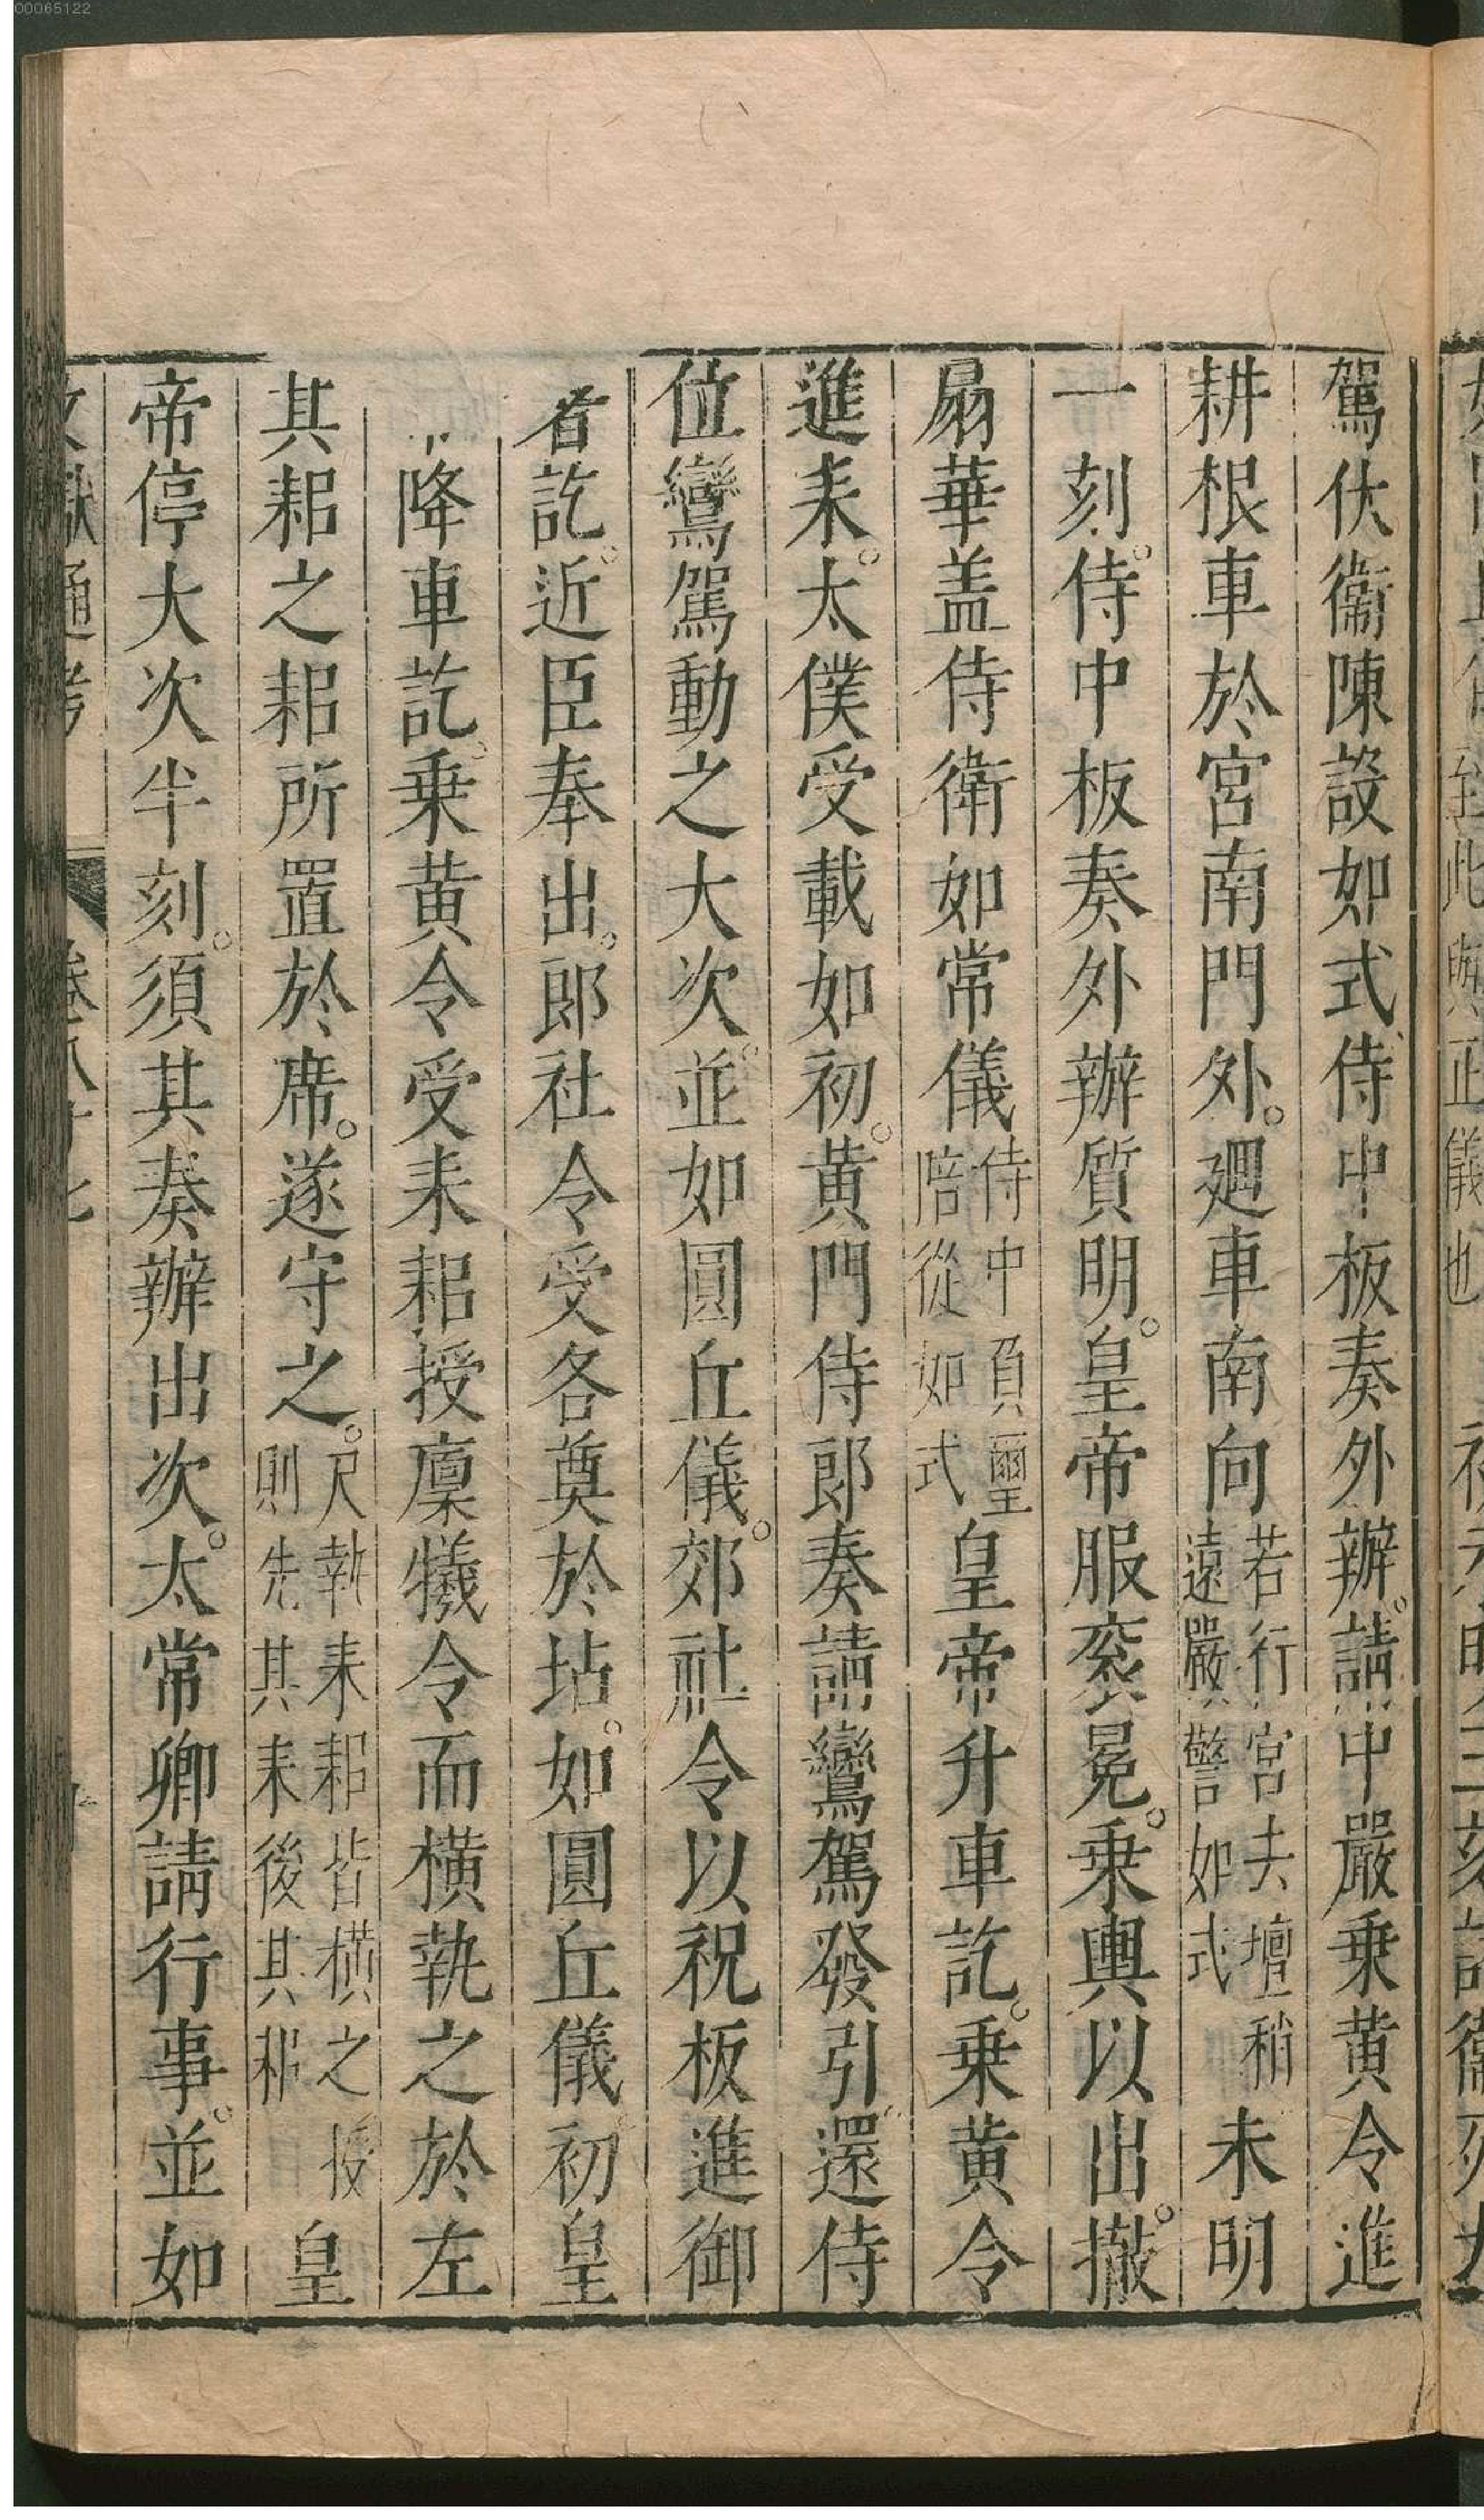 00065122
至此與正儀也
駕仗衞陳設如式侍中板奏外辦請中嚴乗黄令進
耕根車於宮南門外廻車南向若行宮去壇稍遠嚴警如式未明
一刻侍中板奏外辦質明皇帝服衮冕乗輿以出撤
扇華盖侍衛如常儀侍中負璽陪從如式皇帝升車訖乗黄令
進耒太僕受載如初黄門侍郎奏請鸞駕發引還侍
位鸞駕動之大次並如圓丘儀郊社令以祝板進御
者訖近臣奉出郎社令受各奠於坫如圓丘儀初皇
降車訖乗黄令受耒耜授廩犧令而橫執之於左
其耜之耜所置於席遂守之凡執耒耜皆橫之授則先其耒後其耜皇
帝停大次半刻須其奏辦出次太常卿請行事並如
文獻通考 卷八十七